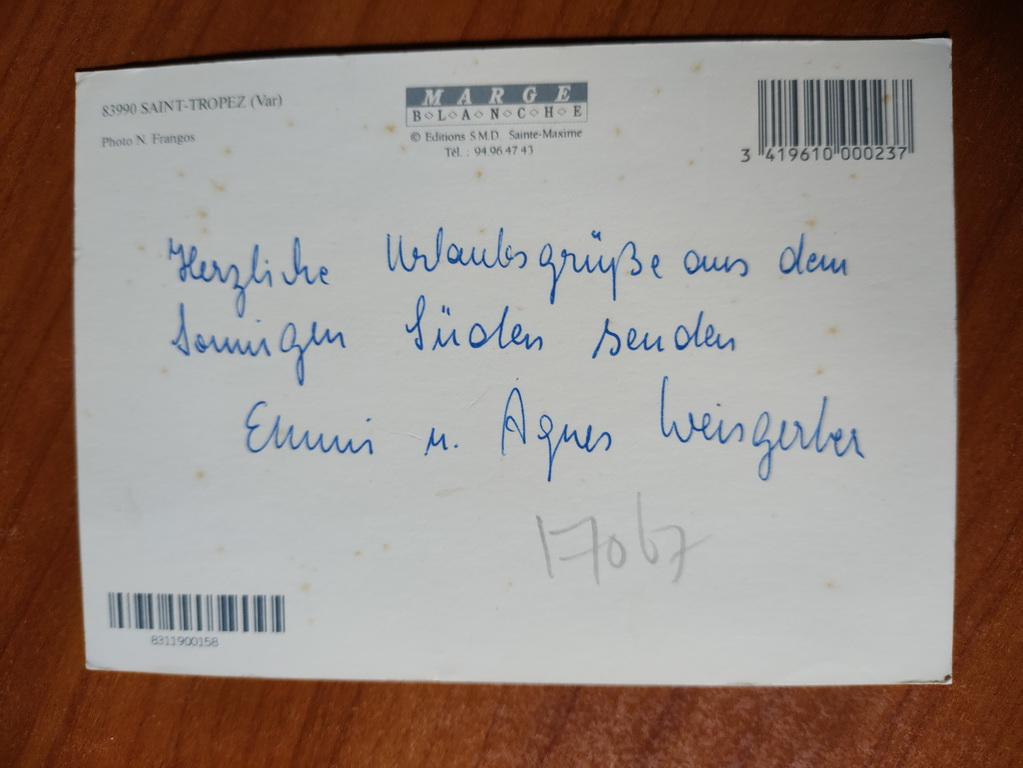 83990 SAINT-TROPEZ (Var)
Photo N. Frangos
MARGE
B◇L◇A◇N◇C◇H◇E
© Editions S.M.D. Sainte-Maxime
Tél. : 94.96.47.43
3 419610 000237
Herzliche Urlaubsgrüße aus dem
sonnigen Süden senden
Emmi u. Agnes Weisgerber
17067
8311900158